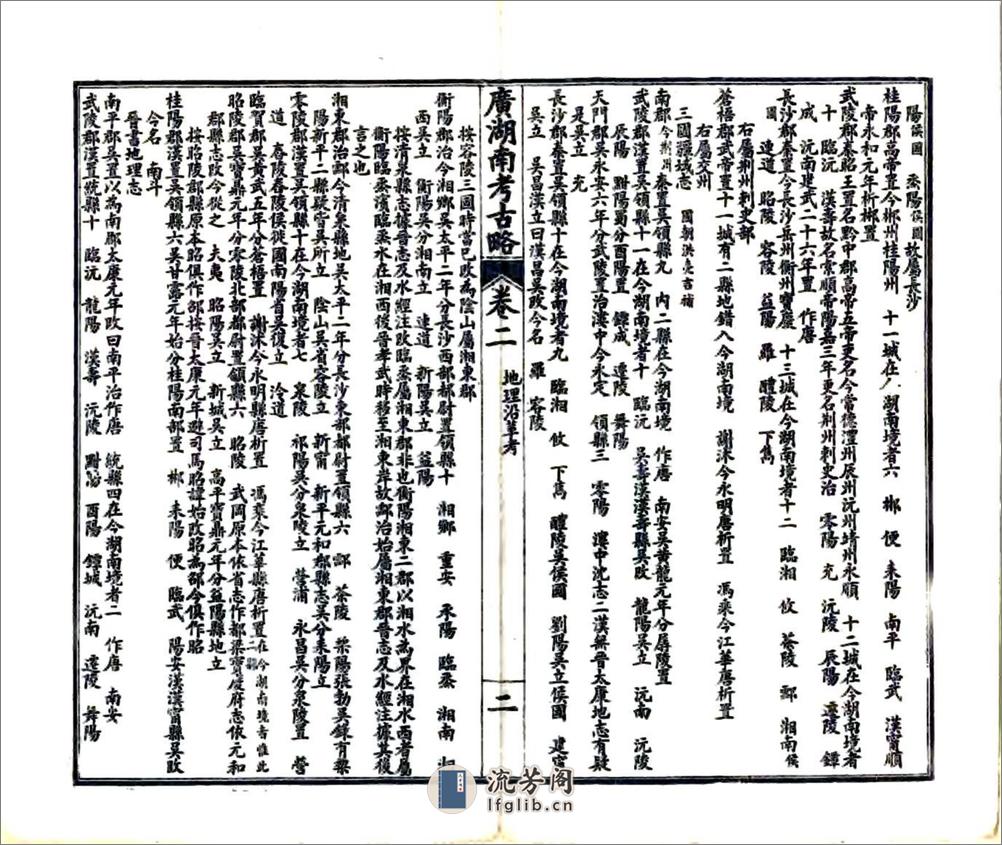 陽侯國　烝陽侯國故屬長沙
桂陽郡高帝置今郴州桂陽州　十一城在　湖南境者六　郴　便　耒陽　南平　臨武　漢甯順
帝永和元年析郴置
武陵郡秦昭王置名黔中郡高帝五帝更名今常德澧州辰州沅州靖州永順　十二城在今湖南境者
十　臨沅　漢壽故名索順帝陽嘉三年更名荆州刺史治　零陽　充　沅陵　辰陽　遷陵　鐔
成　沅南建武二十六年置　作唐
長沙郡秦置今長沙岳州衡州寶慶　十三城在今湖南境者十二　臨湘　攸　荼陵　酃　湘南侯
國　連道　昭陵　容陵　益陽　羅　醴陵　下雋
右屬荆州刺史部
蒼梧郡武帝置十一城有二縣地錯入今湖南境　謝沐今永明唐析置　馮乘今江華唐析置
右屬交州
三國疆域志　國朝洪亮吉補
南郡今荆州　秦置吳領縣九　內二縣在今湖南境　作唐　南安吳黃龍元年分孱陵置
武陵郡漢置吳領縣十一在今湖南境者十　吳壽漢漢壽縣吳改　龍陽吳立　沅南　沅陵
辰陽　黚陽蜀分酉陽置　鐔成　遷陵　舞陽
天門郡吳永安六年分武陵置治漊中今永定　領縣三　零陽　漊中沈志二漢無晉太康地志有疑
是吳立　充
長沙郡秦置吳領縣十在今湖南境者九　臨湘　攸　下雋　醴陵吳侯國　劉陽吳立侯國　建甯
吳立　吳昌漢立曰漢昌吳改今名　羅　容陵
廣湖南考古略　卷二　地理沿革考　二
按容陵三國時當已改為陰山屬湘東郡
衡陽郡治今湘鄉吳太平二年分長沙西部都尉置領縣十　湘鄉　重安　烝陽　臨烝　湘南　湘
西吳立　衡陽吳分湘南立　連道　新陽吳立　益陽
按清泉縣志據晉志及水經注改臨烝屬湘東郡非也衡陽湘東二郡以湘水為界在湘水西者屬
衡陽臨烝濱臨烝水在湘西後晉孝武時移至湘東岸故酃治始屬湘東郡晉志及水經注據其後
言之也
湘東郡治酃今清泉縣地吳太平二年分長沙東部都尉置領縣六　酃　茶陵　梨陽張勃吳錄有梨
陽新平二縣疑當吳所立　陰山吳省容陵立　新甯　新平元和郡縣志吳分耒陽立
零陵郡漢置吳領縣十在今湖南境者七　泉陵　祁陽吳分泉陵立　營浦　永昌吳分泉陵置　營
道　舂陵舂陵侯徙國南陽省吳復立　泠道
臨賀郡吳黃武五年分蒼梧置　謝沐今永明縣唐析置　馮乘今江華縣唐析置在今湖南境者惟此二縣
昭陵郡吳寶鼎元年分零陵北部都尉置領縣六　昭陵　武岡原本依省志作都梁寶慶府志依元和
郡縣志改今從之　夫夷　昭陽吳立　新城吳立　高平寶鼎元年分益陽縣地立
按昭陵郡昭陵縣原本昭俱作邵按晉太康元年避司馬昭諱始改昭為邵今俱作昭
桂陽郡漢置吳領縣六吳甘露元年始分桂陽南部置　郴　耒陽　便　臨武　陽安漢漢甯縣吳改
今名　南斗
晉書地理志
南平郡吳置以為南郡太康元年改曰南平治作唐　統縣四在今湖南境者二　作唐　南安
武陵郡漢置統縣十　臨沅　龍陽　漢壽　沅陵　黚陽　酉陽　鐔城　沅南　遷陵　舞陽
流芳阁
lfglib.cn